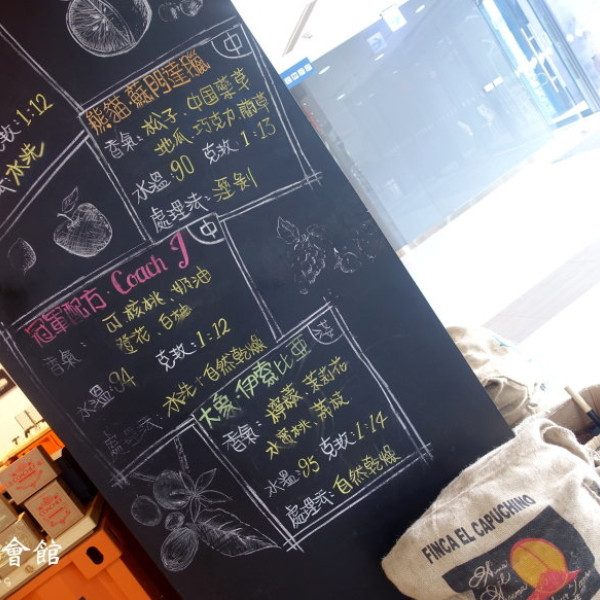 1:12
水洗
熊貓 蘇門達臘
中
香氣: 松子、中国藥草
地瓜 巧克力 蘭草
水溫: 90 克孜: 1:13
處理法: 溼剝
冠軍配方. Coach J
中
香氣: 可核桃、奶油
白
水溫: 94 克孜: 1:12
處理法: 水洗+自然乾燥
大象 伊索比亞
淺
香氣: 薔薇 茉莉花
水蜜桃
水溫: 95 克孜: 1:14
處理法: 自然乾燥
FINCA EL CAPUCHINO
會館